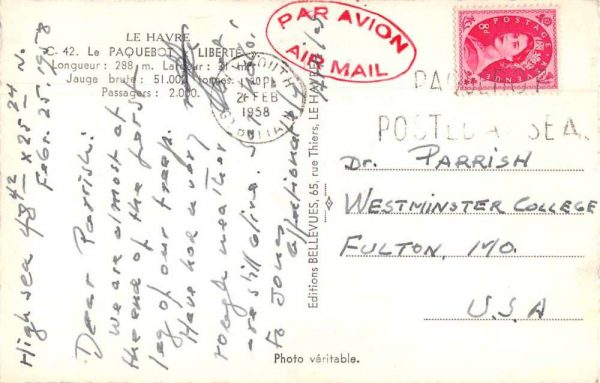 LE HAVRE
C. 42. Le PAQUEBOT LIBERTÉ
Longueur : 288 m. Largeur : 31 m.
Jauge brute : 51.000 tonnes.
Passagers : 2.000
PAR AVION
AIR MAIL
POSTAGE
REVENUE
8D
FEB
1958
PAQUEBOT
POSTED AT SEA
High sea 48 42 x 25 24 N.
Febr. 25. 1958
Dear Parrish:
We are almost at
the end of the
leg of our
Have had a very
rough weather
are still alive.
to Jones
affectionately
Editions BELLEVUES, 65, rue Thiers, LE HAVRE
Dr. PARRISH
WESTMINSTER COLLEGE
FULTON, MO.
USA
Photo véritable.